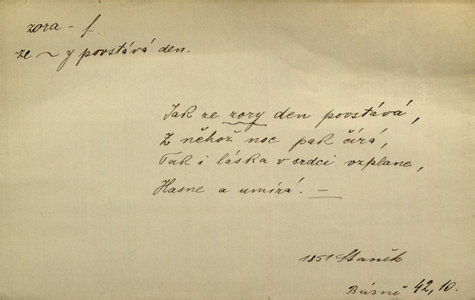 zora - f.
ze ~ y povstává den.
Jak ze zory den povstává,
Z něhož noc pak čírá,
Tak i láska v srdci vzplane,
Hasne a umírá. —
1851 Staněk
Básně 42, 10.